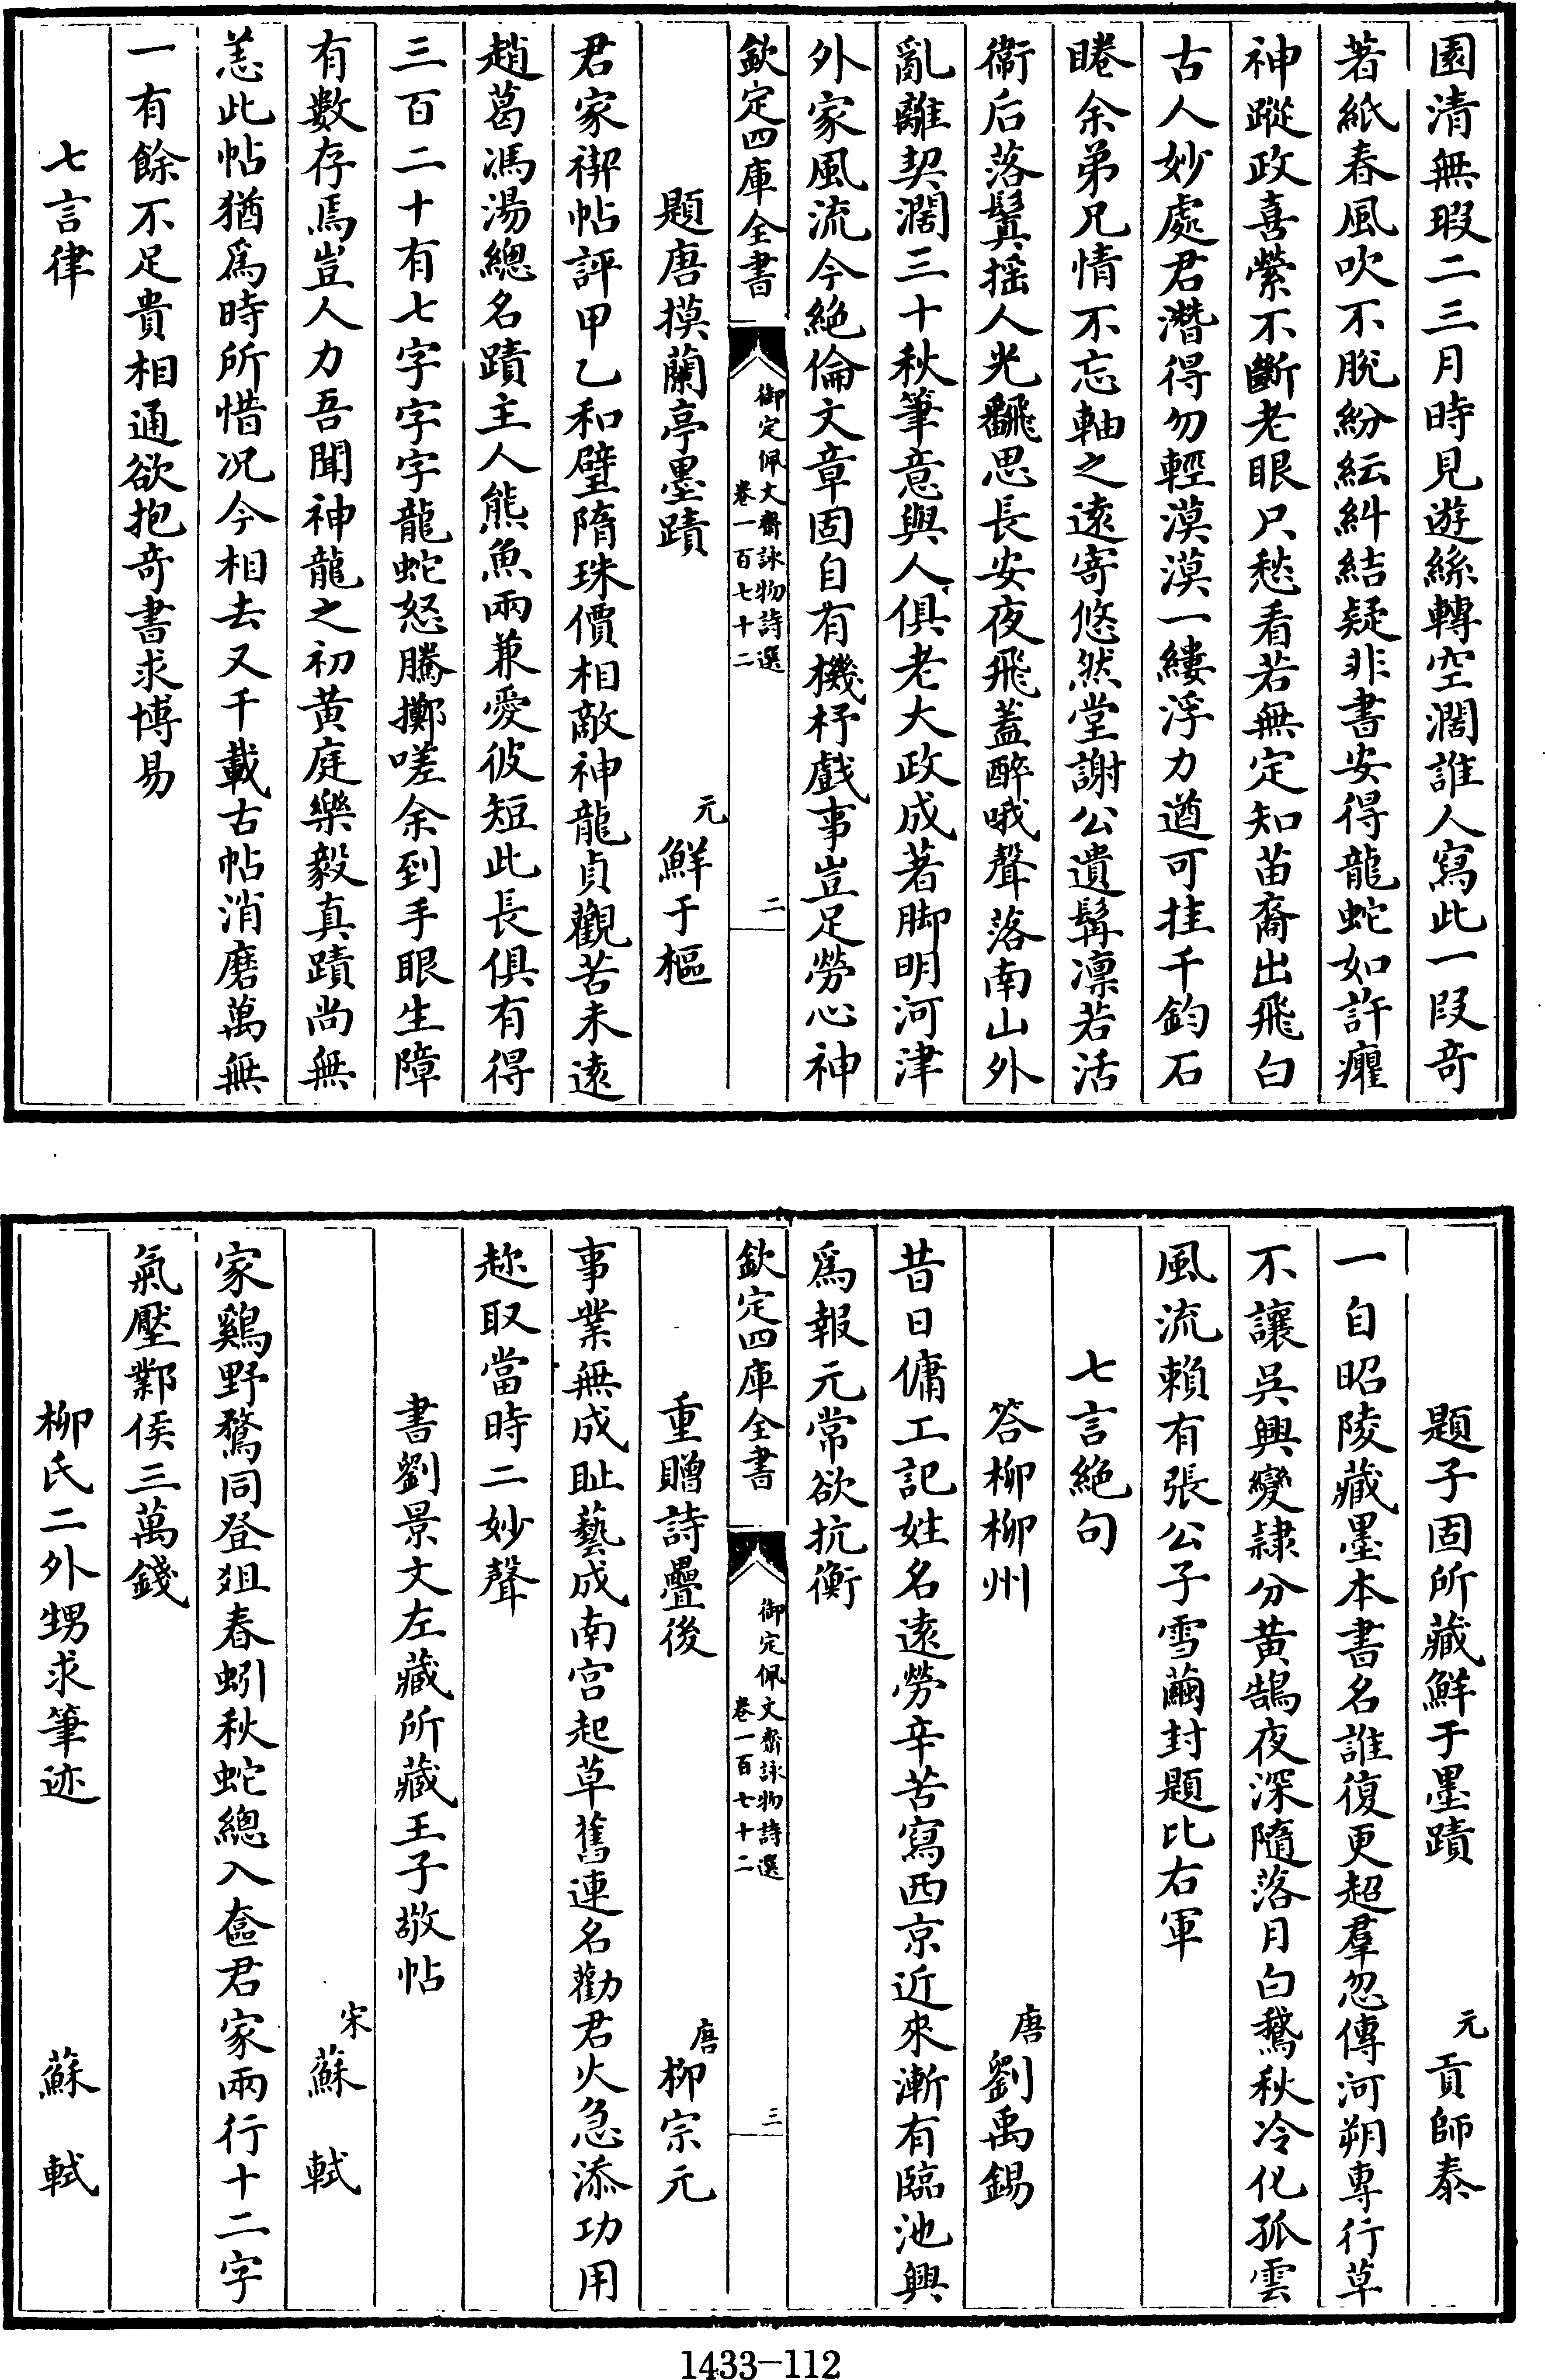 園清無瑕二三月時見遊絲轉空濶誰人寫此一段奇
著紙春風吹不脫紛紜糾結疑非書安得龍蛇如許癯
神蹤政喜縈不斷老眼只愁看若無定知苗裔出飛白
古人妙處君潛得勿輕漠漠一縷浮力遒可挂千鈞石
睠余弟兄情不忘軸之遠寄悠然堂謝公遺髯凛若活
衞后落鬒揺人光翻思長安夜飛蓋醉哦聲落南山外
亂離契濶三十秋筆意與人俱老大政成著脚明河津
外家風流今絶倫文章固自有機杼戲事豈足勞心神
欽定四庫全書
御定佩文齋詠物詩選
卷一百七十二
二
題唐摸蘭亭墨蹟
元 鮮于樞
君家禊帖評甲乙和璧隋珠價相敵神龍貞觀苦未遠
趙葛馮湯總名蹟主人熊魚兩兼愛彼短此長俱有得
三百二十有七字字字龍蛇怒騰擲嗟余到手眼生障
有數存焉豈人力吾聞神龍之初黄庭樂毅真蹟尚無
恙此帖猶爲時所惜况今相去又千載古帖消磨萬無
一有餘不足貴相通欲抱奇書求博易
七言律
題子固所藏鮮于墨蹟
元 貢師泰
一自昭陵藏墨本書名誰復更超羣忽傳河朔專行草
不讓吳興變隷分黄鵠夜深隨落月白鵞秋冷化孤雲
風流賴有張公子雪繭封題比右軍
七言絶句
答柳柳州
唐 劉禹錫
昔日傭工記姓名遠勞辛苦寫西京近來漸有臨池興
爲報元常欲抗衡
欽定四庫全書
御定佩文齋詠物詩選
卷一百七十二
三
重贈詩疊後
唐 柳宗元
事業無成耻藝成南宫起草舊連名勸君火急添功用
趂取當時二妙聲
書劉景文左藏所藏王子敬帖
宋 蘇軾
家鷄野鶩同登俎春蚓秋蛇總入奩君家兩行十二字
氣壓鄴侯三萬籖
柳氏二外甥求筆迹
蘇軾
1433-112